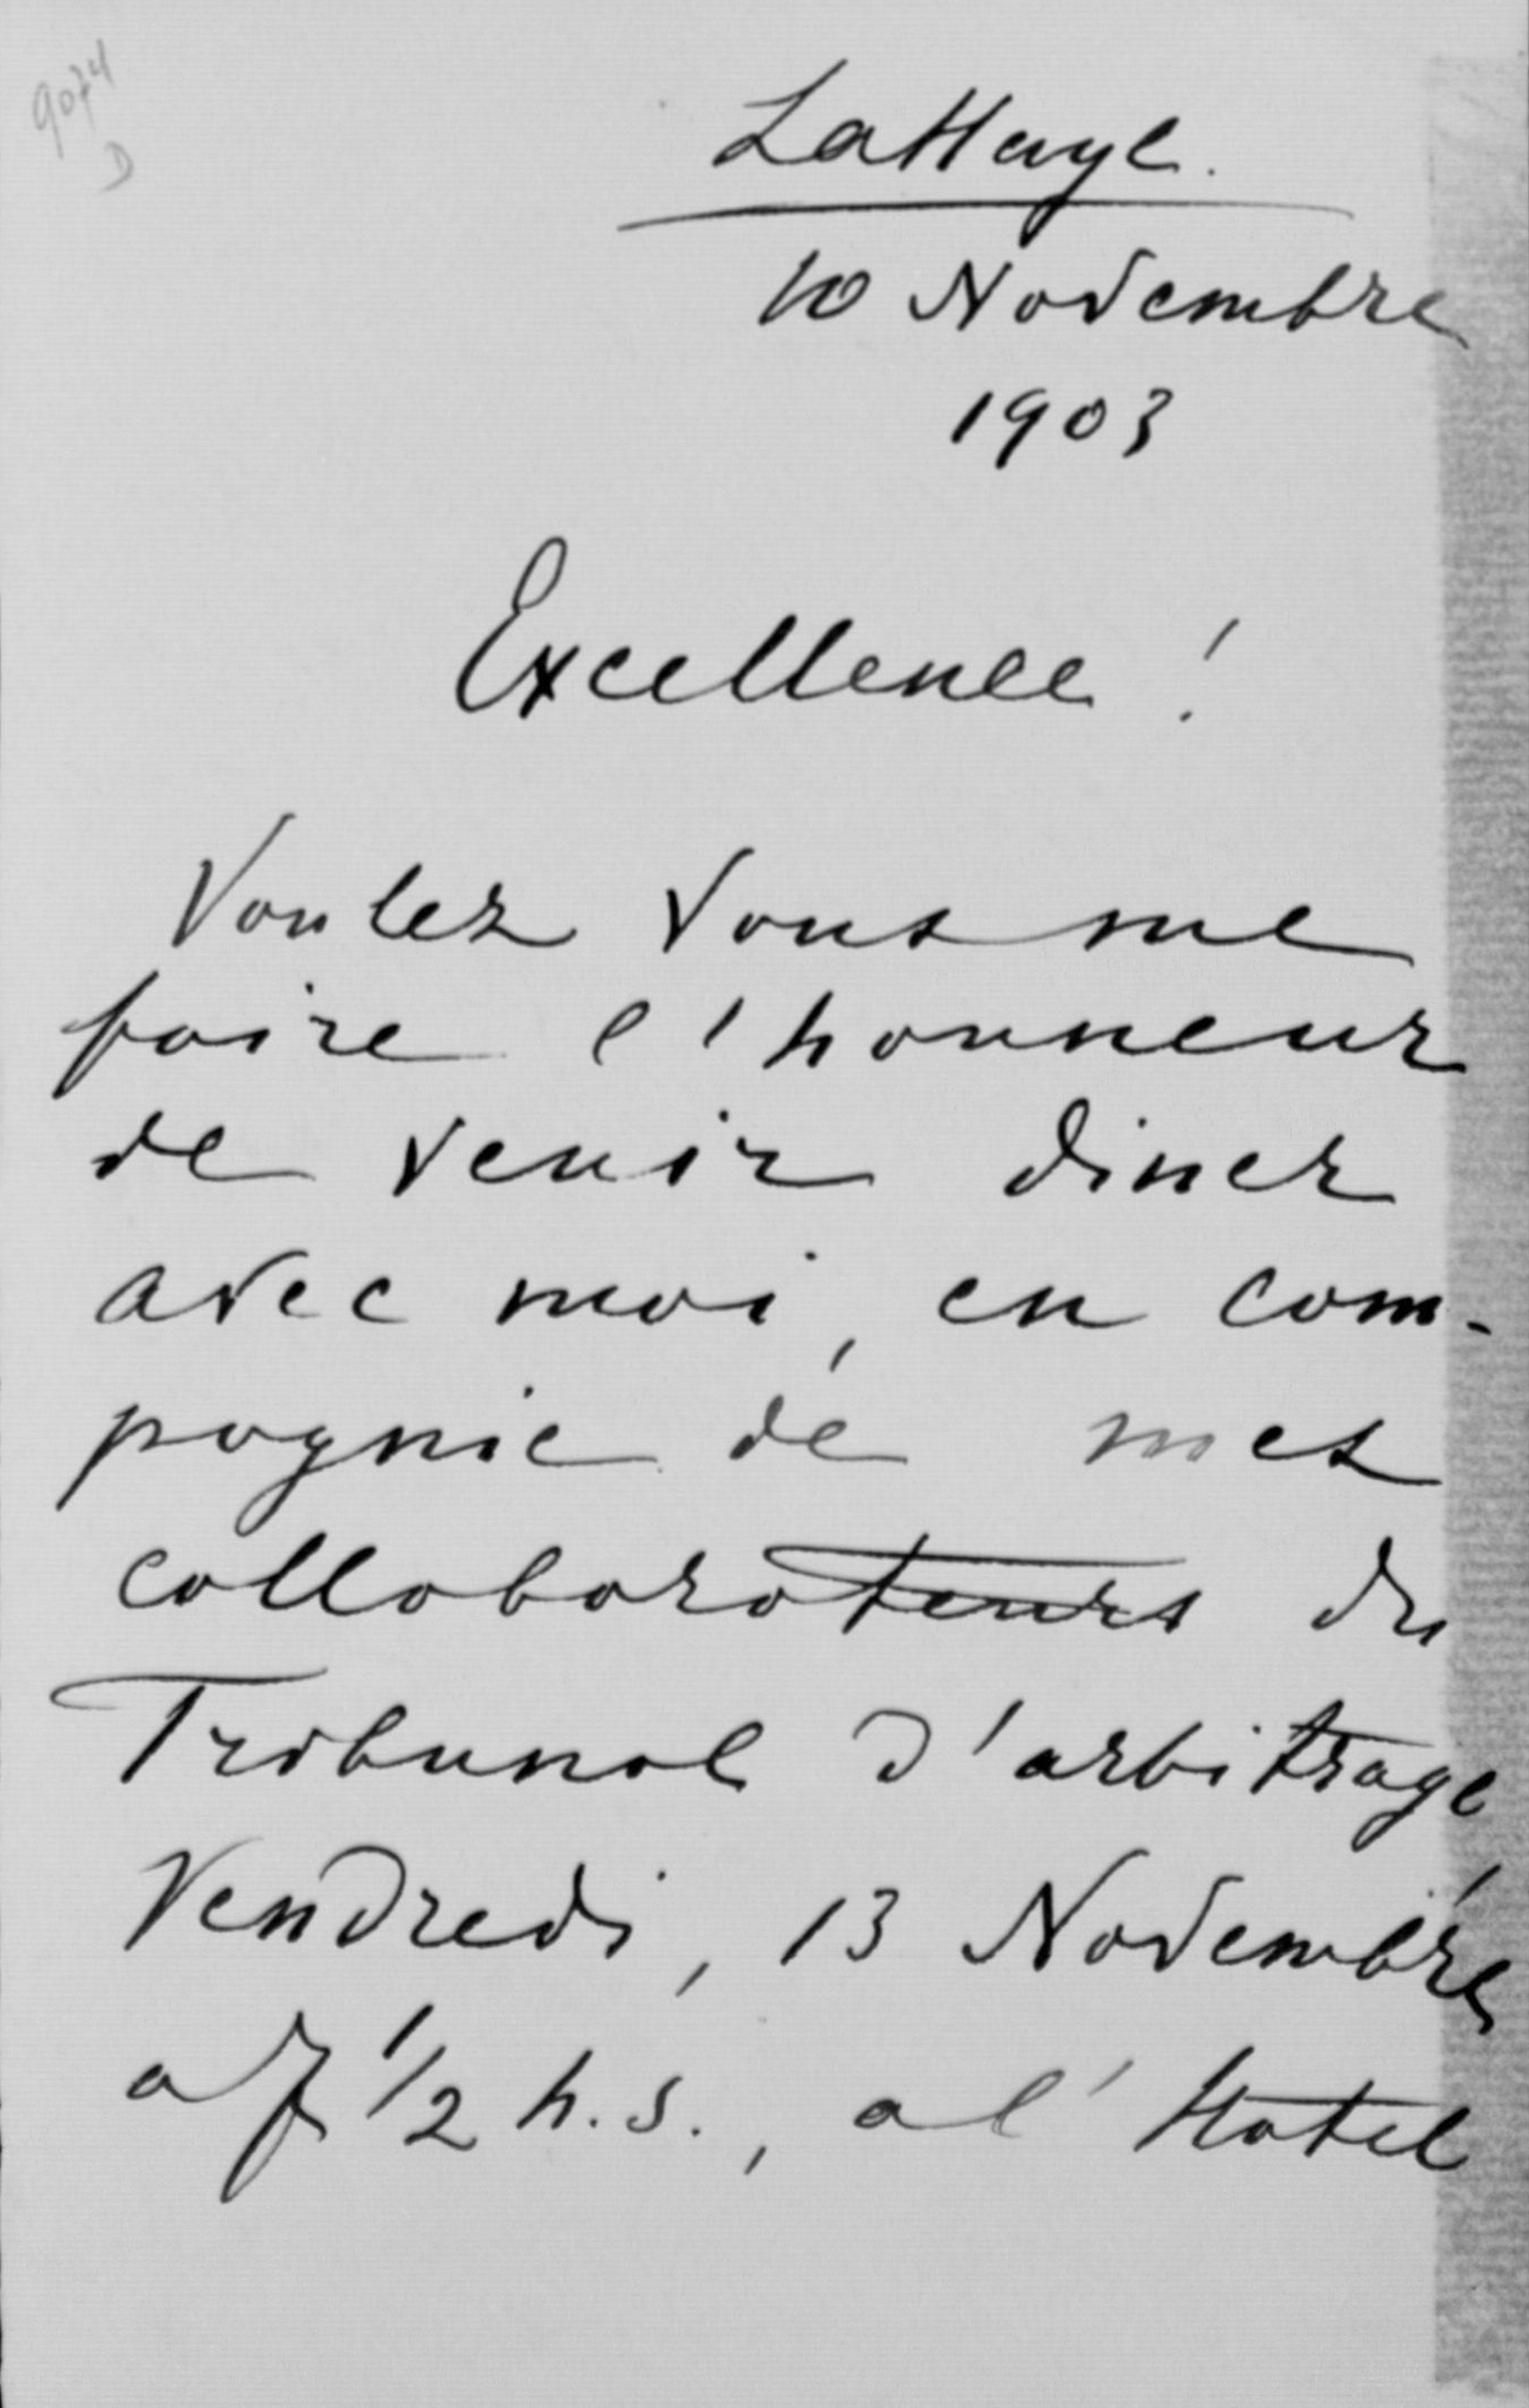 9074
D
La Haye.
10 Novembre
1903
Excellence !
Voulez vous me
faire l'honneur
de venir diner
avec moi, en com-
pagnie de mes
collaborateurs du
Tribunal d'arbitrage
Vendredi, 13 Novembre
a 7 1/2 h. s., a l'Hotel